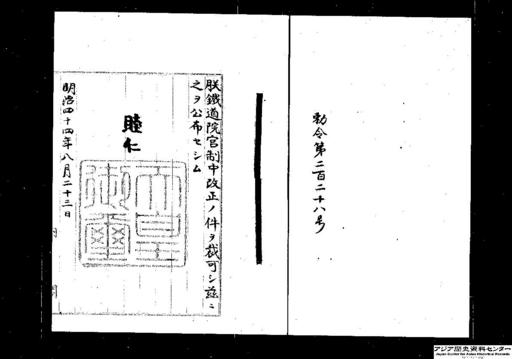 勅令第二百二十八号
朕鐵道院官制中改正ノ件ヲ裁可シ茲ニ
之ヲ公布セシム
睦仁
天皇御璽
明治四十四年八月二十三日
アジア歴史資料センター
Japan Center for Asian Historical Records